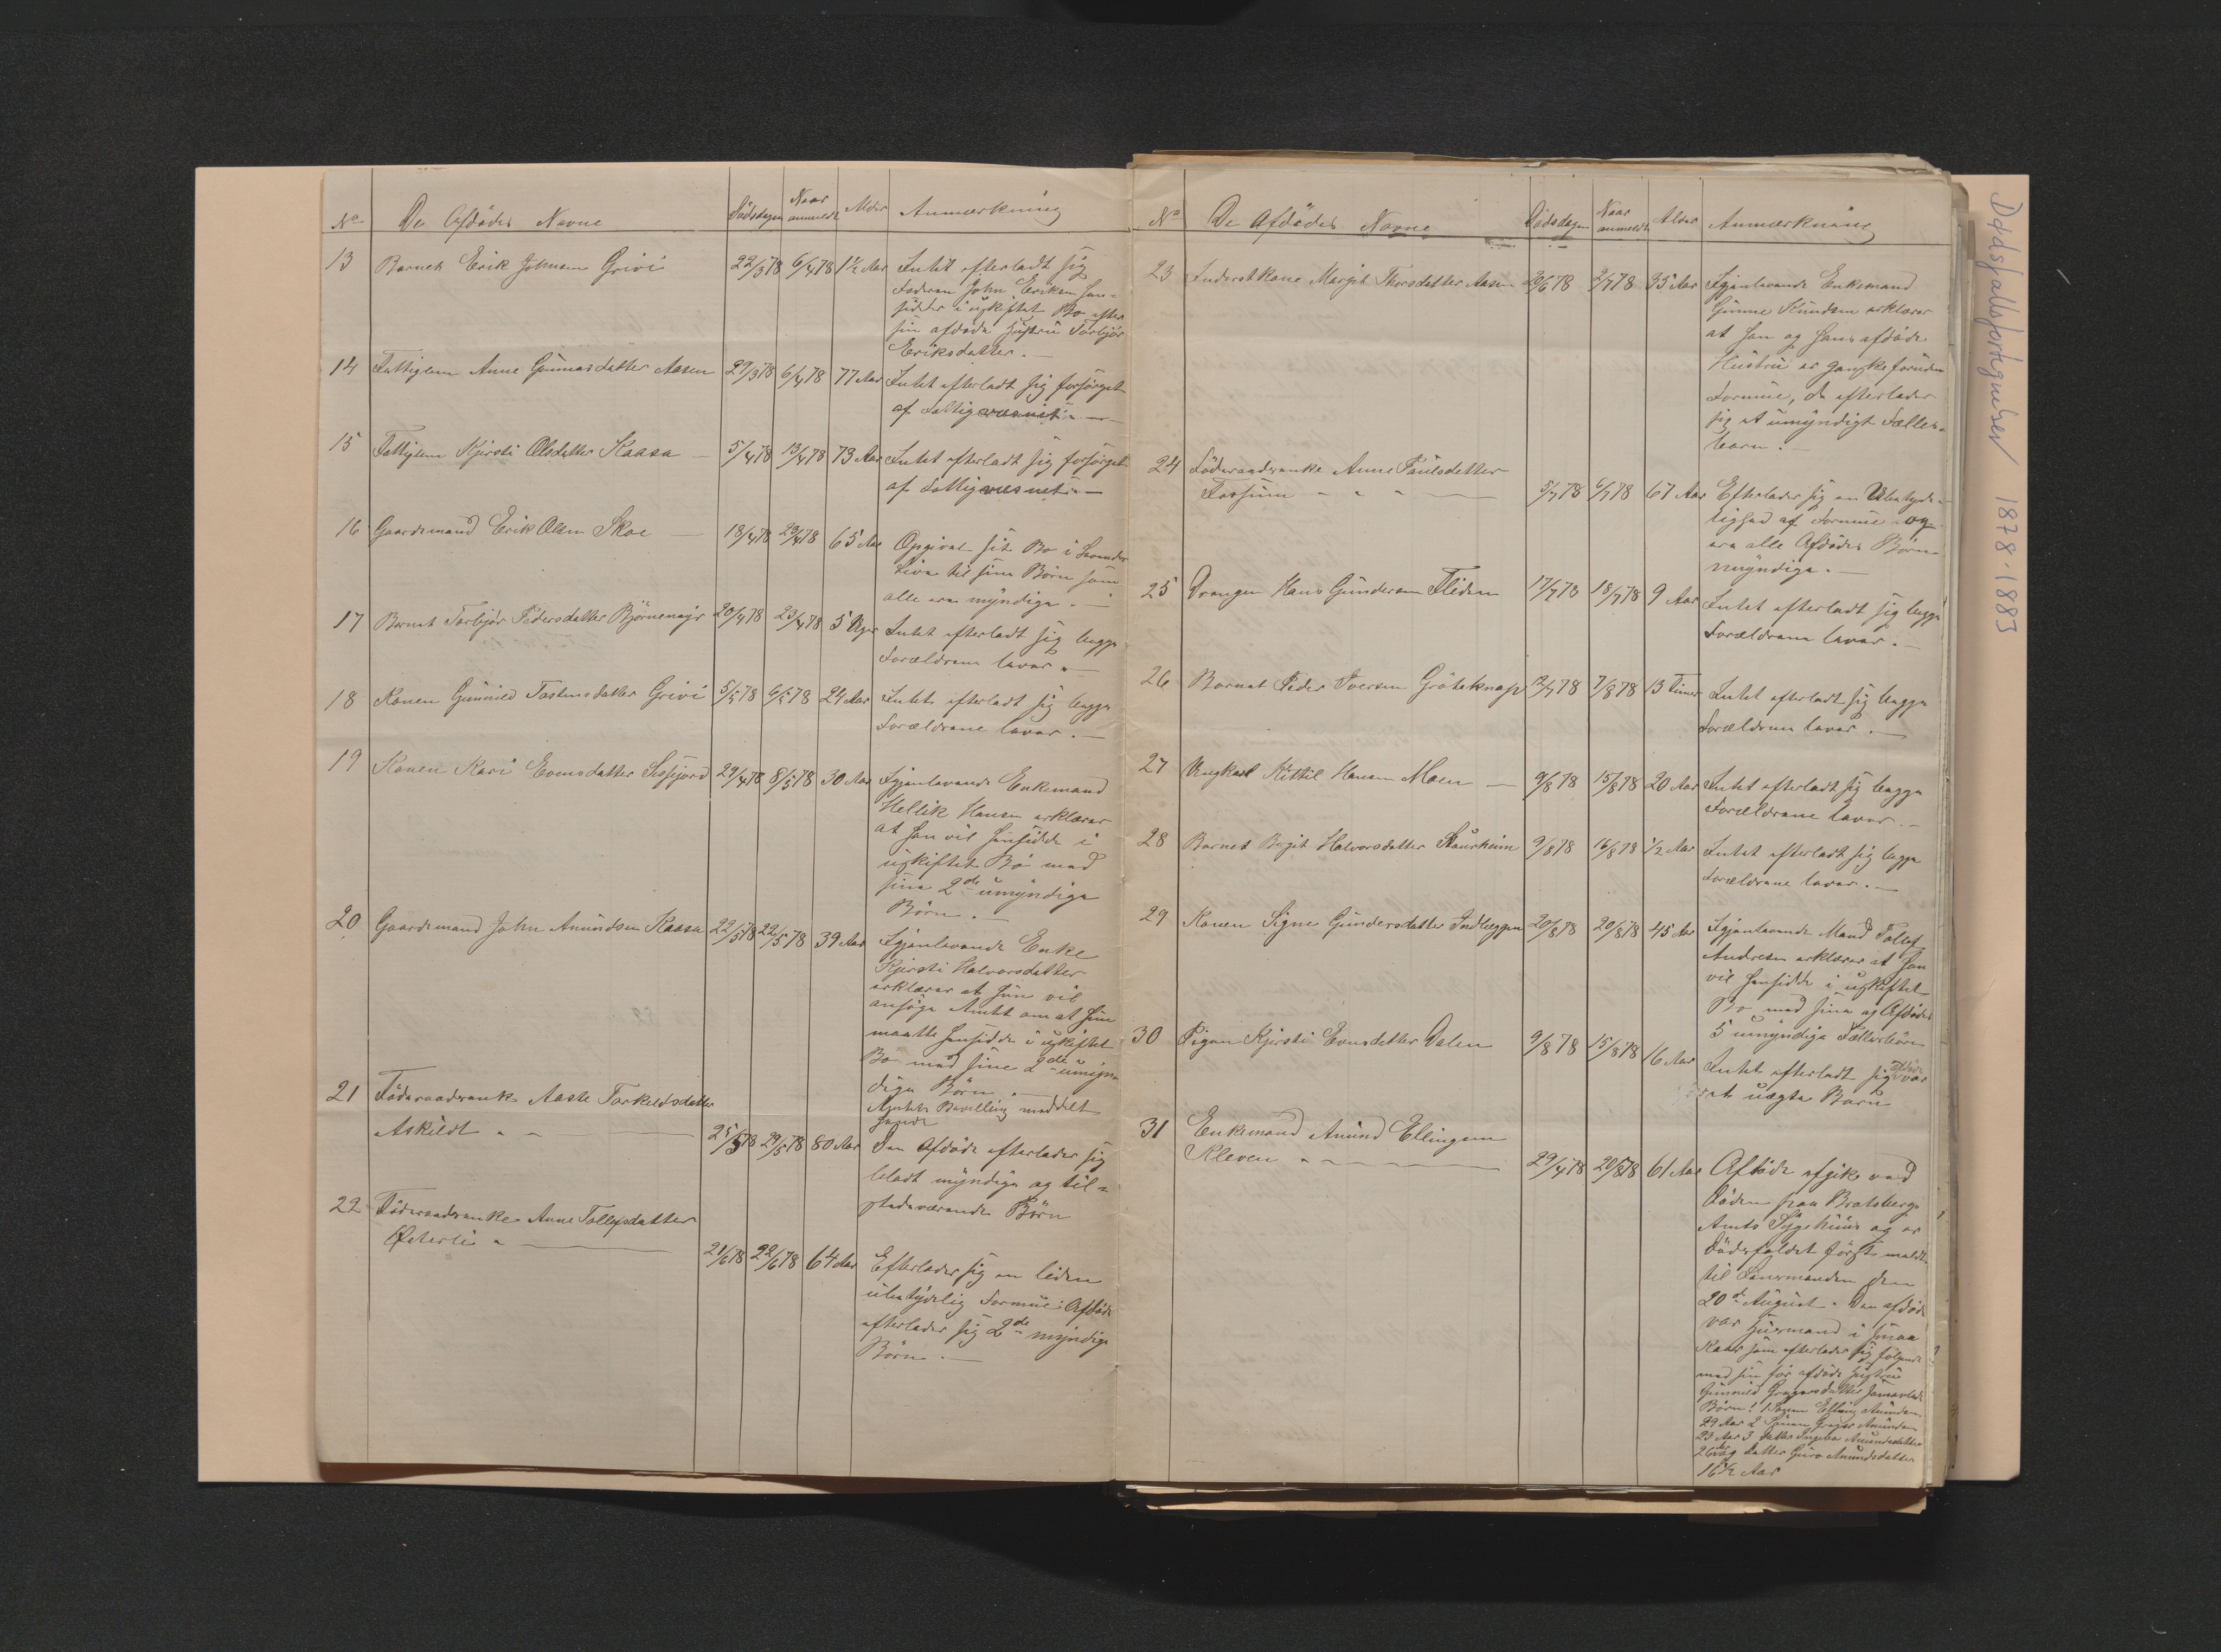 No De Afdödes Navne Dödsdagen Naar anmeldt Alder Anmærkning
13 Barnet Erik Johnsen Grivi 22/3 78 6/4 78 1½ Aar Intet efterladt sig
Faderen John Eriksen hen=
sidder i uskiftet Bo efter
sin afdøde Hustru Torbjør
Eriksdatter.—
14 Fattiglem Anne Gunnarsdatter Aasen 29/3 78 6/4 78 77 Aar Intet efterladt sig forsörget
af Fattigvæsnet.—
15 Fattiglem Kjersti Olsdatter Kaasa — 5/4 78 13/4 78 73 Aar Intet efterladt sig forsörget
af Fattigvæsnet.—
16 Gaardmand Erik Olsen Skoe — 18/4 78 23/4 78 65 Aar Opgivet sit Bo i levende
Live til sine Börn som
alle ere myndige.—
17 Barnet Torbjör Pedersdatter Björnemyr 20/4 78 23/4 78 5 Uger Intet efterladt sig begge
Forældrene lever.—
18 Konen Gunnild Tostensdatter Grivi 5/5 78 6/5 78 24 Aar Intet efterladt sig begge
Forældrene lever.—
19 Konen Kari Evensdatter 29/4 78 8/5 78 30 Aar Igjenlevende Enkemand
Hellik Hansen erklærer
at han vil hensidde i
uskiftet Bo med
sine 2de umyndige
Börn.—
20 Gaardmand John Amundsen Kaasa 22/5 78 22/5 78 39 Aar Igjenlevende Enke
Kjersti Halvorsdatter
erklærer at hun vil
ansöge Amtet om at hun
maatte hensidde i uskiftet
Bo med sine 2de umyn
dige Börn.—
Amtets Bevilling meddelt
hende
21 Föderaadsenke Aaste Torkildsdatter
Askildt — 25/5 78 29/5 78 80 Aar Den Afdöde efterlader sig
blodt myndige og til=
stedeværende Börn
22 Föderaadsenke Anne Tollefsdatter
Østerli — 21/6 78 22/6 78 64 Aar Efterlader sig en liden
ubetydelig Formue. Afdöde
efterlader sig 2de myndige
Börn.—
No De Afdödes Navne Dödsdagen Naar anmeldt Alder Anmærkning
23 Inderstkone Margit Thorsdatter Aasen 20/6 78 2/7 78 35 Aar Igjenlevende Enkemand
Gunne Knudsen erklærer
at han og hans afdöde
Hustru er ganske foruden
Formue, de efterlader
sig et umyndigt Fælles-
barn.
24 Föderaadsenke Anne Paulsdatter
Fossum — 5/7 78 6/7 78 67 Aar Efterlader sig en Ubetyde-
lighed af Formue og
ere alle Afdödes Börn
myndige.—
25 Drengen Hans Gundersen Fliden 17/7 78 18/7 78 9 Aar Intet efterladt sig begge
Forældrene lever.—
26 Barnet Peder Iversen Gröteknap 12/7 78 7/8 78 13 Timer Intet efterladt sig begge
Forældrene lever.—
27 Ungkarl Kittil Hansen Moen — 9/8 78 15/8 78 20 Aar Intet efterladt sig begge
Forældrene lever.—
28 Barnet Birgit Halvorsdatter 9/8 78 16/8 78 ½ Aar Intet efterladt sig begge
Forældrene lever.—
29 Konen Signe Gundersdatter Indlæggen 20/8 78 20/8 78 45 Aar Igjenlevende Mand Tollef
Andresen erklærer at han
vil hensidde i uskiftet
Bo med sine og Afdödes
5 umyndige Fællesbörn
30 Pigen Kjersti Evensdatter Dalen 9/8 78 15/8 78 16 Aar Intet efterladt sig Afdöde var
et uægte Barn
31 Enkemand Amund Ellingsen
Kleven — 29/4 78 20/8 78 61 Aar Afdöde afgik ved
Döden paa Bratsbergs
Amts Sygehuus og er
Dödsfaldet först meldt
til Lensmanden den
20de August. Den afdöde
var Huusmand i smaa
Kaar som efterlader sig fölgende
med sin för afdöde Hustru
Gunnild Gregersdatter sammenavlede
Börn: 1 Sönnen Elling Amundsen
29 Aar 2 Sönnen Greger Amundsen
23 Aar 3 Datter Ingebor Amundsdatter
26 Aar og Datter Guro Amundsdatter
16½ Aar
Dødsfallsfortegnelser 1878-1883